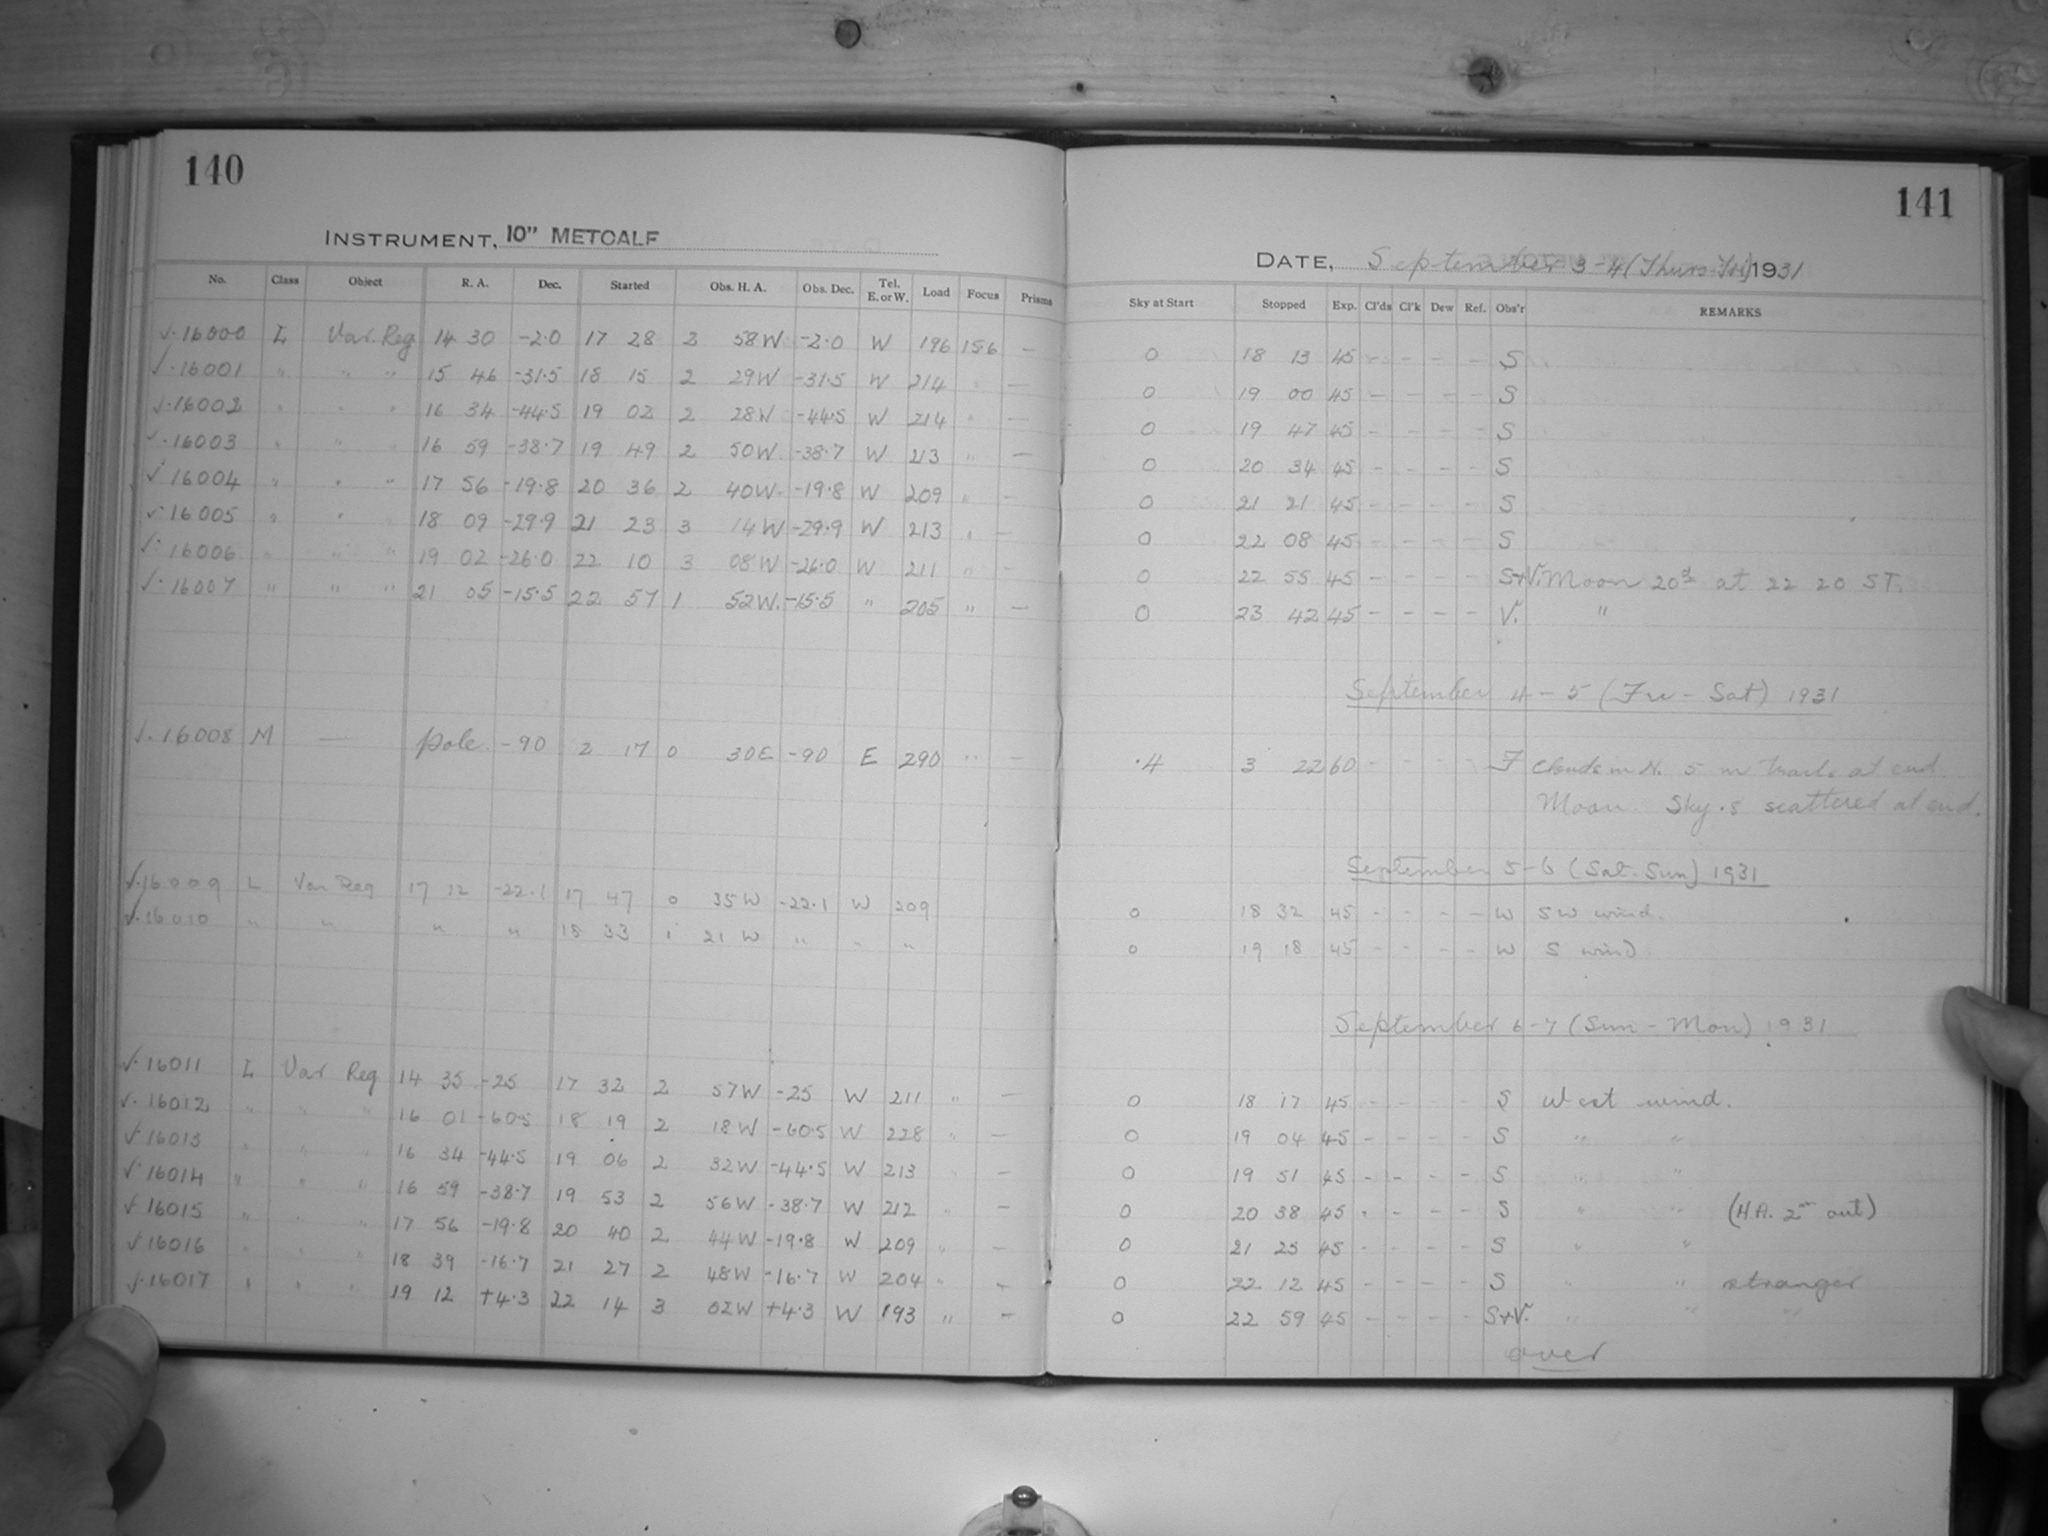 140
INSTRUMENT, 10" METCALF
No. Class Object R. A. Dec. Started Obs. H. A. Obs. Dec. Tel. E. or W. Load Focus Prisms
√·16000 L Var. Reg 14 30 -2.0 17 28 2 58W -2.0 W 196 156 —
√·16001 " " " 15 46 -31.5 18 15 2 29W -31.5 W 214 " —
√·16002 " " " 16 34 -44.5 19 02 2 28W -44.5 W 214 " —
√·16003 " " " 16 59 -38.7 19 49 2 50W -38.7 W 213 " —
√ 16004 " " " 17 56 -19.8 20 36 2 40W -19.8 W 209 " —
√·16005 " " " 18 09 -29.9 21 23 3 14W -29.9 W 213 " —
√·16006 " " " 19 02 -26.0 22 10 3 08W -26.0 W 211 " —
√·16007 " " " 21 05 -15.5 22 57 1 52W. -15.5 " 205 " —
√·16008 M — pole. -90 2 17 0 30E -90 E 290 " —
√·16009 L Var Reg 17 12 -22.1 17 47 0 35W -22.1 W 209
√·16010 " " " " 18 33 1 21 W " " "
√·16011 L Var Reg 14 35 -25 17 32 2 57W -25 W 211 " —
√·16012 " " " 16 01 -60.5 18 19 2 18W -60.5 W 228 " —
√ 16013 " " " 16 34 -44.5 19 06 2 32W -44.5 W 213 " —
√·16014 " " " 16 59 -38.7 19 53 2 56W -38.7 W 212 " —
√ 16015 " " " 17 56 -19.8 20 40 2 44W -19.8 W 209 " —
√ 16016 " " " 18 39 -16.7 21 27 2 48W -16.7 W 204 " —
√·16017 " " " 19 12 +4.3 22 14 3 02W +4.3 W 193 " —
141
DATE, September 3-4 (Thurs-Fri) 1931
Sky at Start Stopped Exp. Cl'ds Cl'k Dew Ref. Obs'r REMARKS
0 18 13 45 - - - - S
0 19 00 45 - - - - S
0 19 47 45 - - - - S
0 20 34 45 - - - - S
0 21 21 45 - - - - S
0 22 08 45 - - - - S
0 22 55 45 - - - - S+V. Moon 20d at 22 20 ST.
0 23 42 45 - - - - V. "
September 4-5 (Fri-Sat) 1931
.4 3 22 60 - - - - F Clouds in N. 5 m trails at end.
Moon. Sky .8 scattered at end.
September 5-6 (Sat-Sun) 1931
0 18 32 45 - - - - W SW wind.
0 19 18 45 - - - - W S wind.
September 6-7 (Sun-Mon) 1931
0 18 17 45 - - - - S West wind.
0 19 04 45 - - - - S " "
0 19 51 45 - - - - S " "
0 20 38 45 - - - - S " " (H A. 2m out)
0 21 25 45 - - - - S " "
0 22 12 45 - - - - S " " stranger
0 22 59 45 - - - - S+V. " " "
over